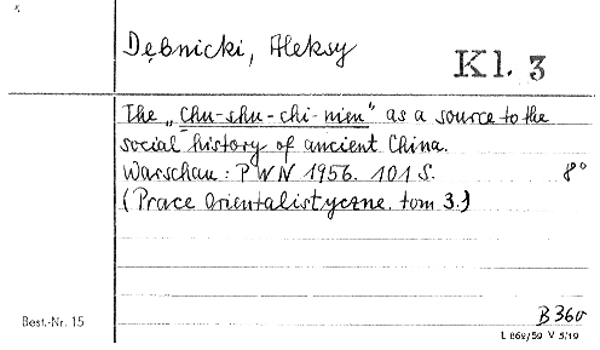 Dębnicki, Aleksy
Kl. 3
The „Chu-shu-chi-nien“ as a source to the
social history of ancient China.
Warschau: PWN 1956. 101 S. 8°
(Prace Orientalistyczne. tom 3.)
B 360
Best.-Nr. 15
L 868/59 V 5/19